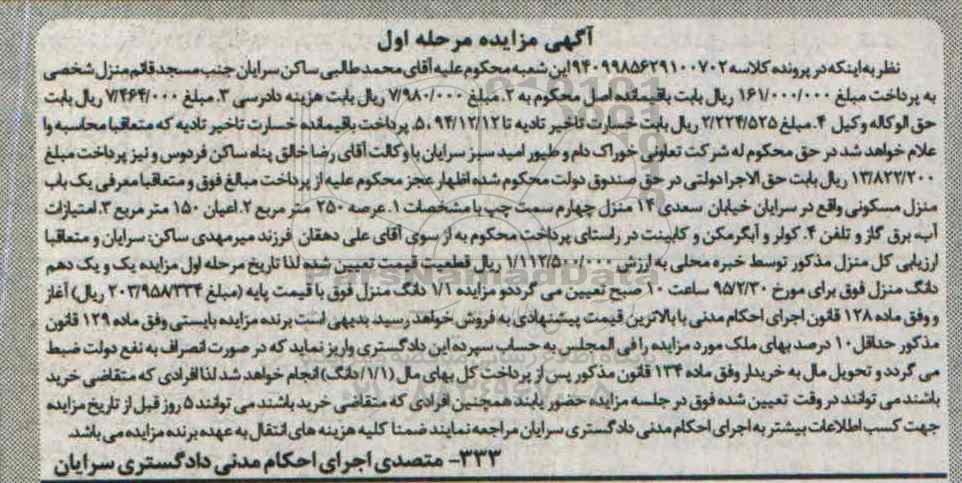 آگهی مزایده مرحله اول
نظر به اینکه در پرونده کلاسه ۹۴۰۹۹۸۵۶۲۹۱۰۰۷۰۲ این شعبه محکوم علیه آقای محمد طالبی ساکن سرایان جنب مسجد قائم منزل شخصی
به پرداخت مبلغ ۱۶۱/۰۰۰/۰۰۰ ریال بابت باقیمانده اصل محکوم به ۲. مبلغ ۷/۹۸۰/۰۰۰ ریال بابت هزینه دادرسی ۳. مبلغ ۷/۴۶۴/۰۰۰ ریال بابت
حق الوکاله وکیل ۴. مبلغ ۲/۲۲۴/۵۲۵ ریال بابت خسارت تاخیر تادیه تا ۹۴/۱۲/۱۲ و ۵. پرداخت باقیمانده خسارت تاخیر تادیه که متعاقبا محاسبه وا
علام خواهد شد در حق محکوم له شرکت تعاونی خوراک دام و طیور امید سبز سرایان با وکالت آقای رضا خالق پناه ساکن فردوس و نیز پرداخت مبلغ
۱۳/۸۲۲/۲۰۰ ریال بابت حق الاجرا دولتی در حق صندوق دولت محکوم شده اظهار عجز محکوم علیه از پرداخت مبالغ فوق و متعاقبا معرفی یک باب
منزل مسکونی واقع در سرایان خیابان سعدی ۱۴ منزل چهارم سمت چپ با مشخصات ۱. عرصه ۲۵۰ متر مربع ۲. اعیان ۱۵۰ متر مربع ۳. امتیازات
آب، برق گاز و تلفن ۴. کولر و آبگرمکن و کابینت در راستای پرداخت محکوم به از سوی آقای علی دهقان فرزند میرمهدی ساکن: سرایان و متعاقبا
ارزیابی کل منزل مذکور توسط خبره محلی به ارزش ۱/۱۱۲/۵۰۰/۰۰۰ ریال قطعیت قیمت تعیین شده لذا تاریخ مرحله اول مزایده یک و یک دهم
دانگ منزل فوق برای مورخ ۹۵/۲/۳۰ ساعت ۱۰ صبح تعیین می گردد و مزایده ۱/۱ دانگ منزل فوق با قیمت پایه (مبلغ ۲۰۳/۹۵۸/۳۳۴ ریال) آغاز
و وفق ماده ۱۲۸ قانون اجرای احکام مدنی با بالاترین قیمت پیشنهادی به فروش خواهد رسید. بدیهی است برنده مزایده بایستی وفق ماده ۱۲۹ قانون
مذکور حداقل ۱۰ درصد بهای ملک مورد مزایده را فی المجلس به حساب سپرده این دادگستری واریز نماید که در صورت انصراف به نفع دولت ضبط
می گردد و تحویل مال به خریدار وفق ماده ۱۳۴ قانون مذکور پس از پرداخت کل بهای مال (۱/۱ دانگ) انجام خواهد شد لذا افرادی که متقاضی خرید
باشند می توانند در وقت تعیین شده فوق در جلسه مزایده حضور یابند همچنین افرادی که متقاضی خرید باشند می توانند ۵ روز قبل از تاریخ مزایده
جهت کسب اطلاعات بیشتر به اجرای احکام مدنی دادگستری سرایان مراجعه نمایند ضمنا کلیه هزینه های انتقال به عهده برنده مزایده می باشد.
۳۳۳- متصدی اجرای احکام مدنی دادگستری سرایان